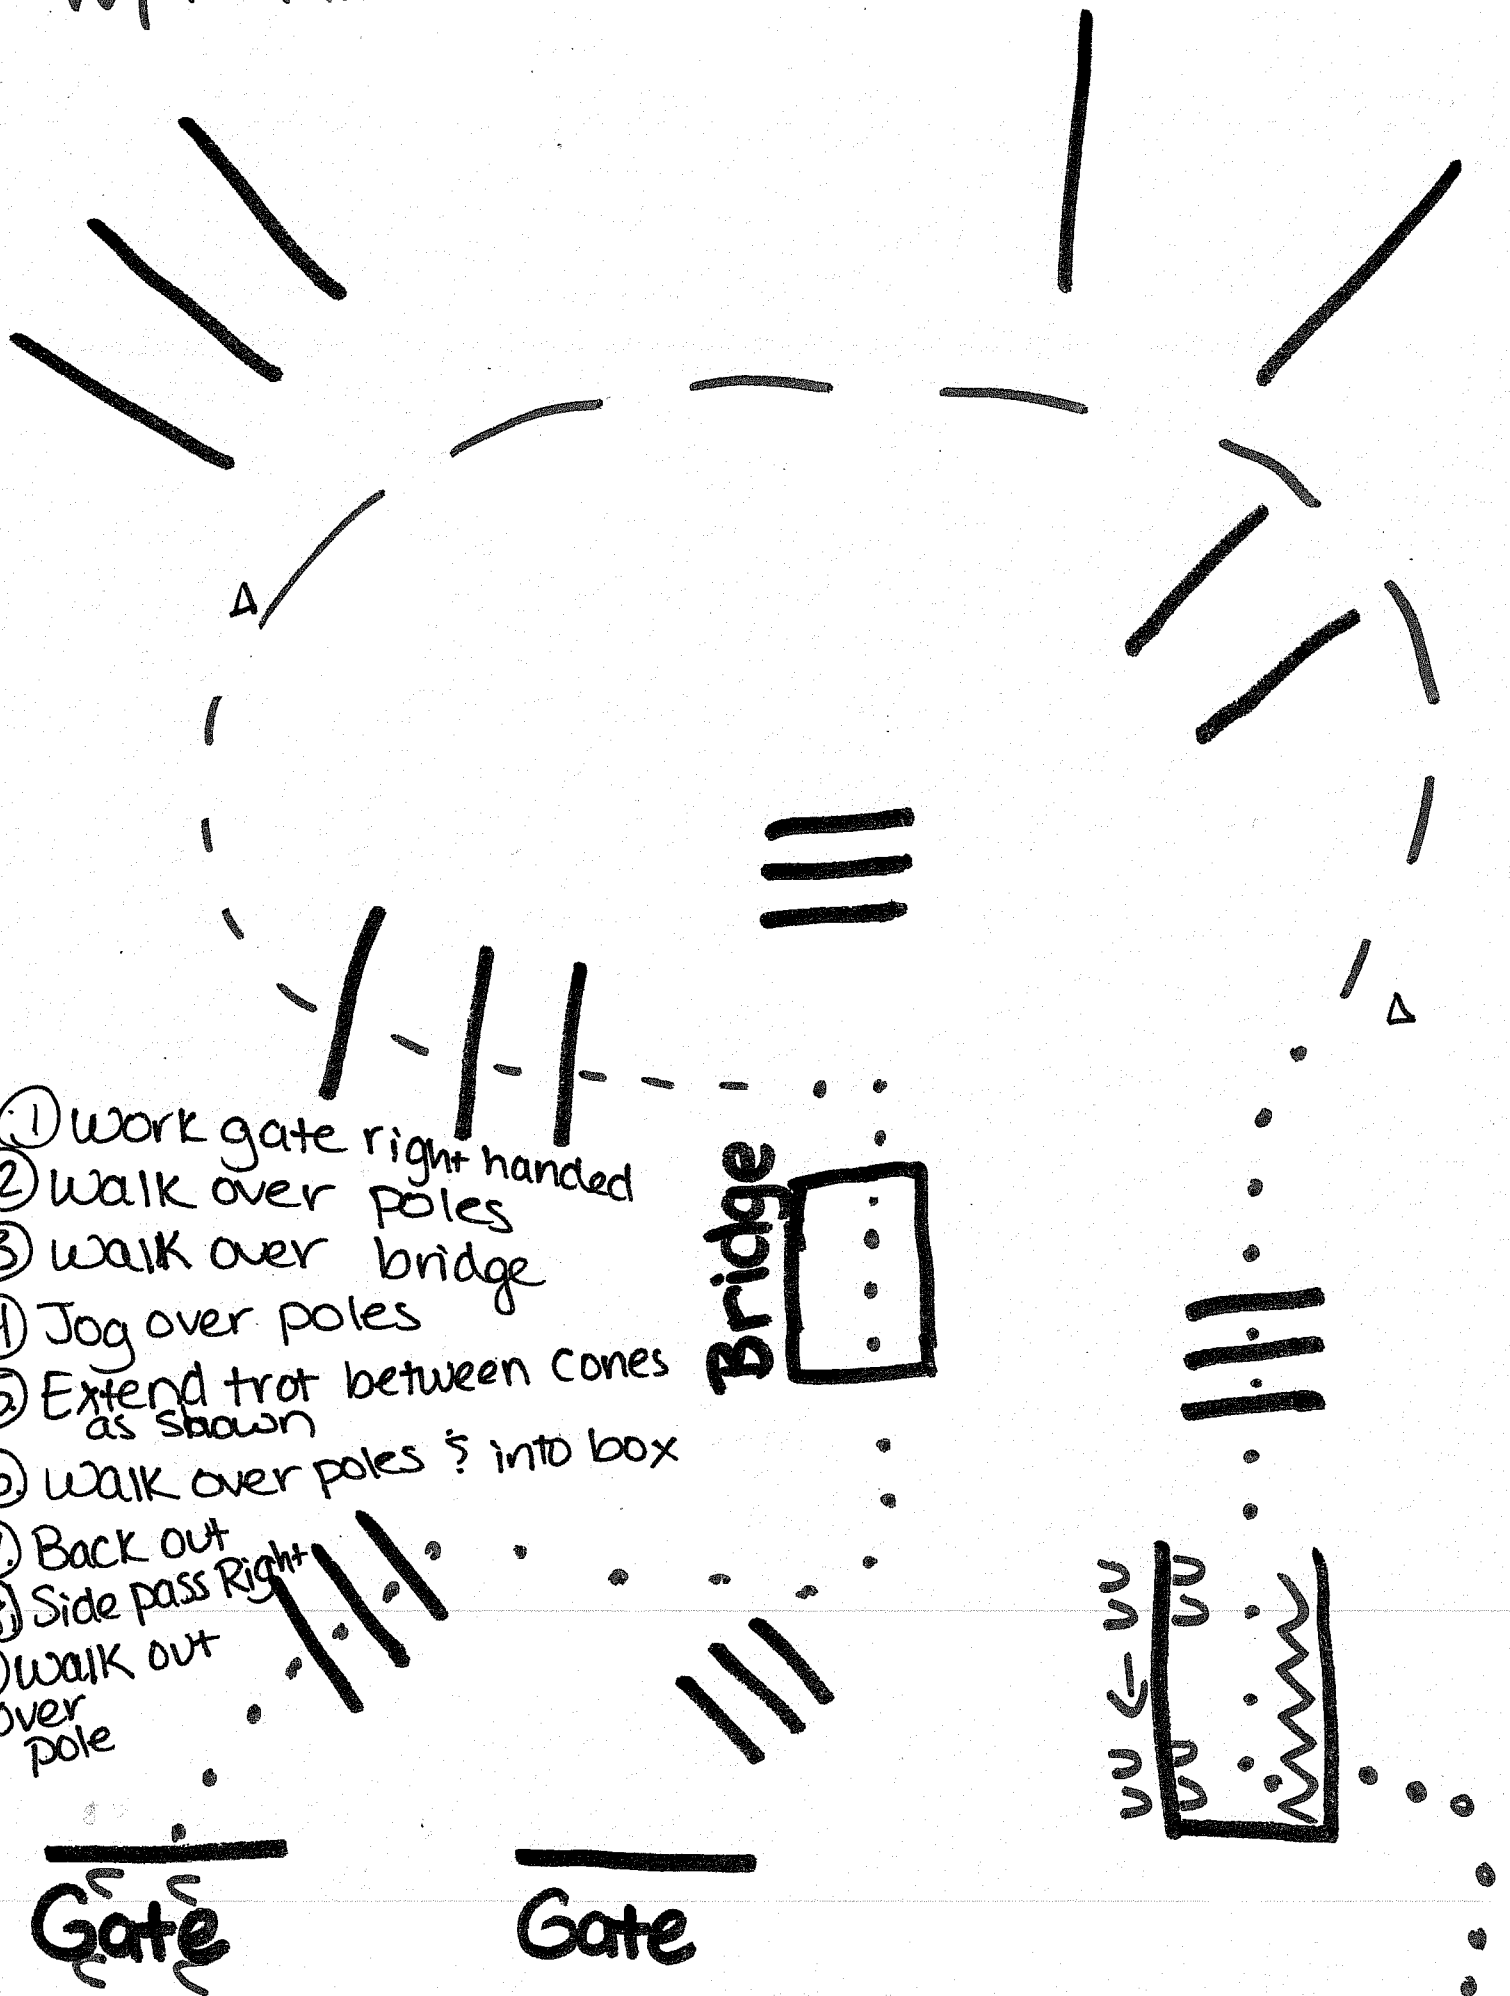 1 Work gate right handed
2 Walk over poles
3 Walk over bridge
4 Jog over poles
5. Extend trot between cones
as shown
6. Walk over poles & into box
7. Back out
8. Side pass Right
Walk out
over
pole
Bridge
Gate
Gate